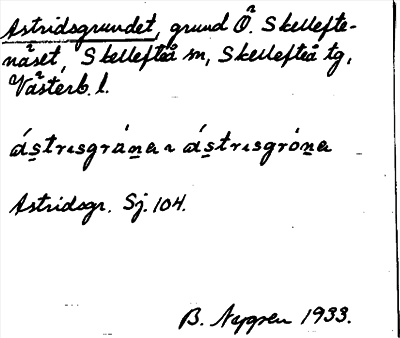 Astridsgrundet, grund Ö. Skellefte-
näset, Skellefteå sn, Skellefteå tg,
Västerb. l.
ást̲rɪsgrán̲a ~ ást̲rɪsgrón̲a
Astridsgr. Sj. 104.
B. Nygren 1933.